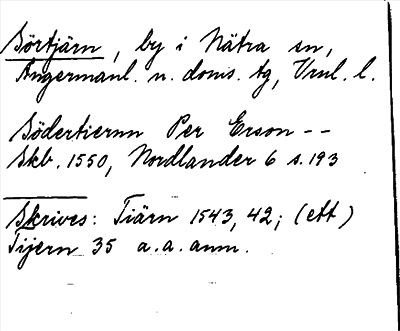 Sörtjärn, by i Nätra sn,
Ångermanl. n. doms. tg, Vrnl. l.
Södertiernn Per Erson --
Skb. 1550, Nordlander 6 s. 193
Skrives: Tiärn 1543, 42; (ett)
Tijern 35 a.a. anm.